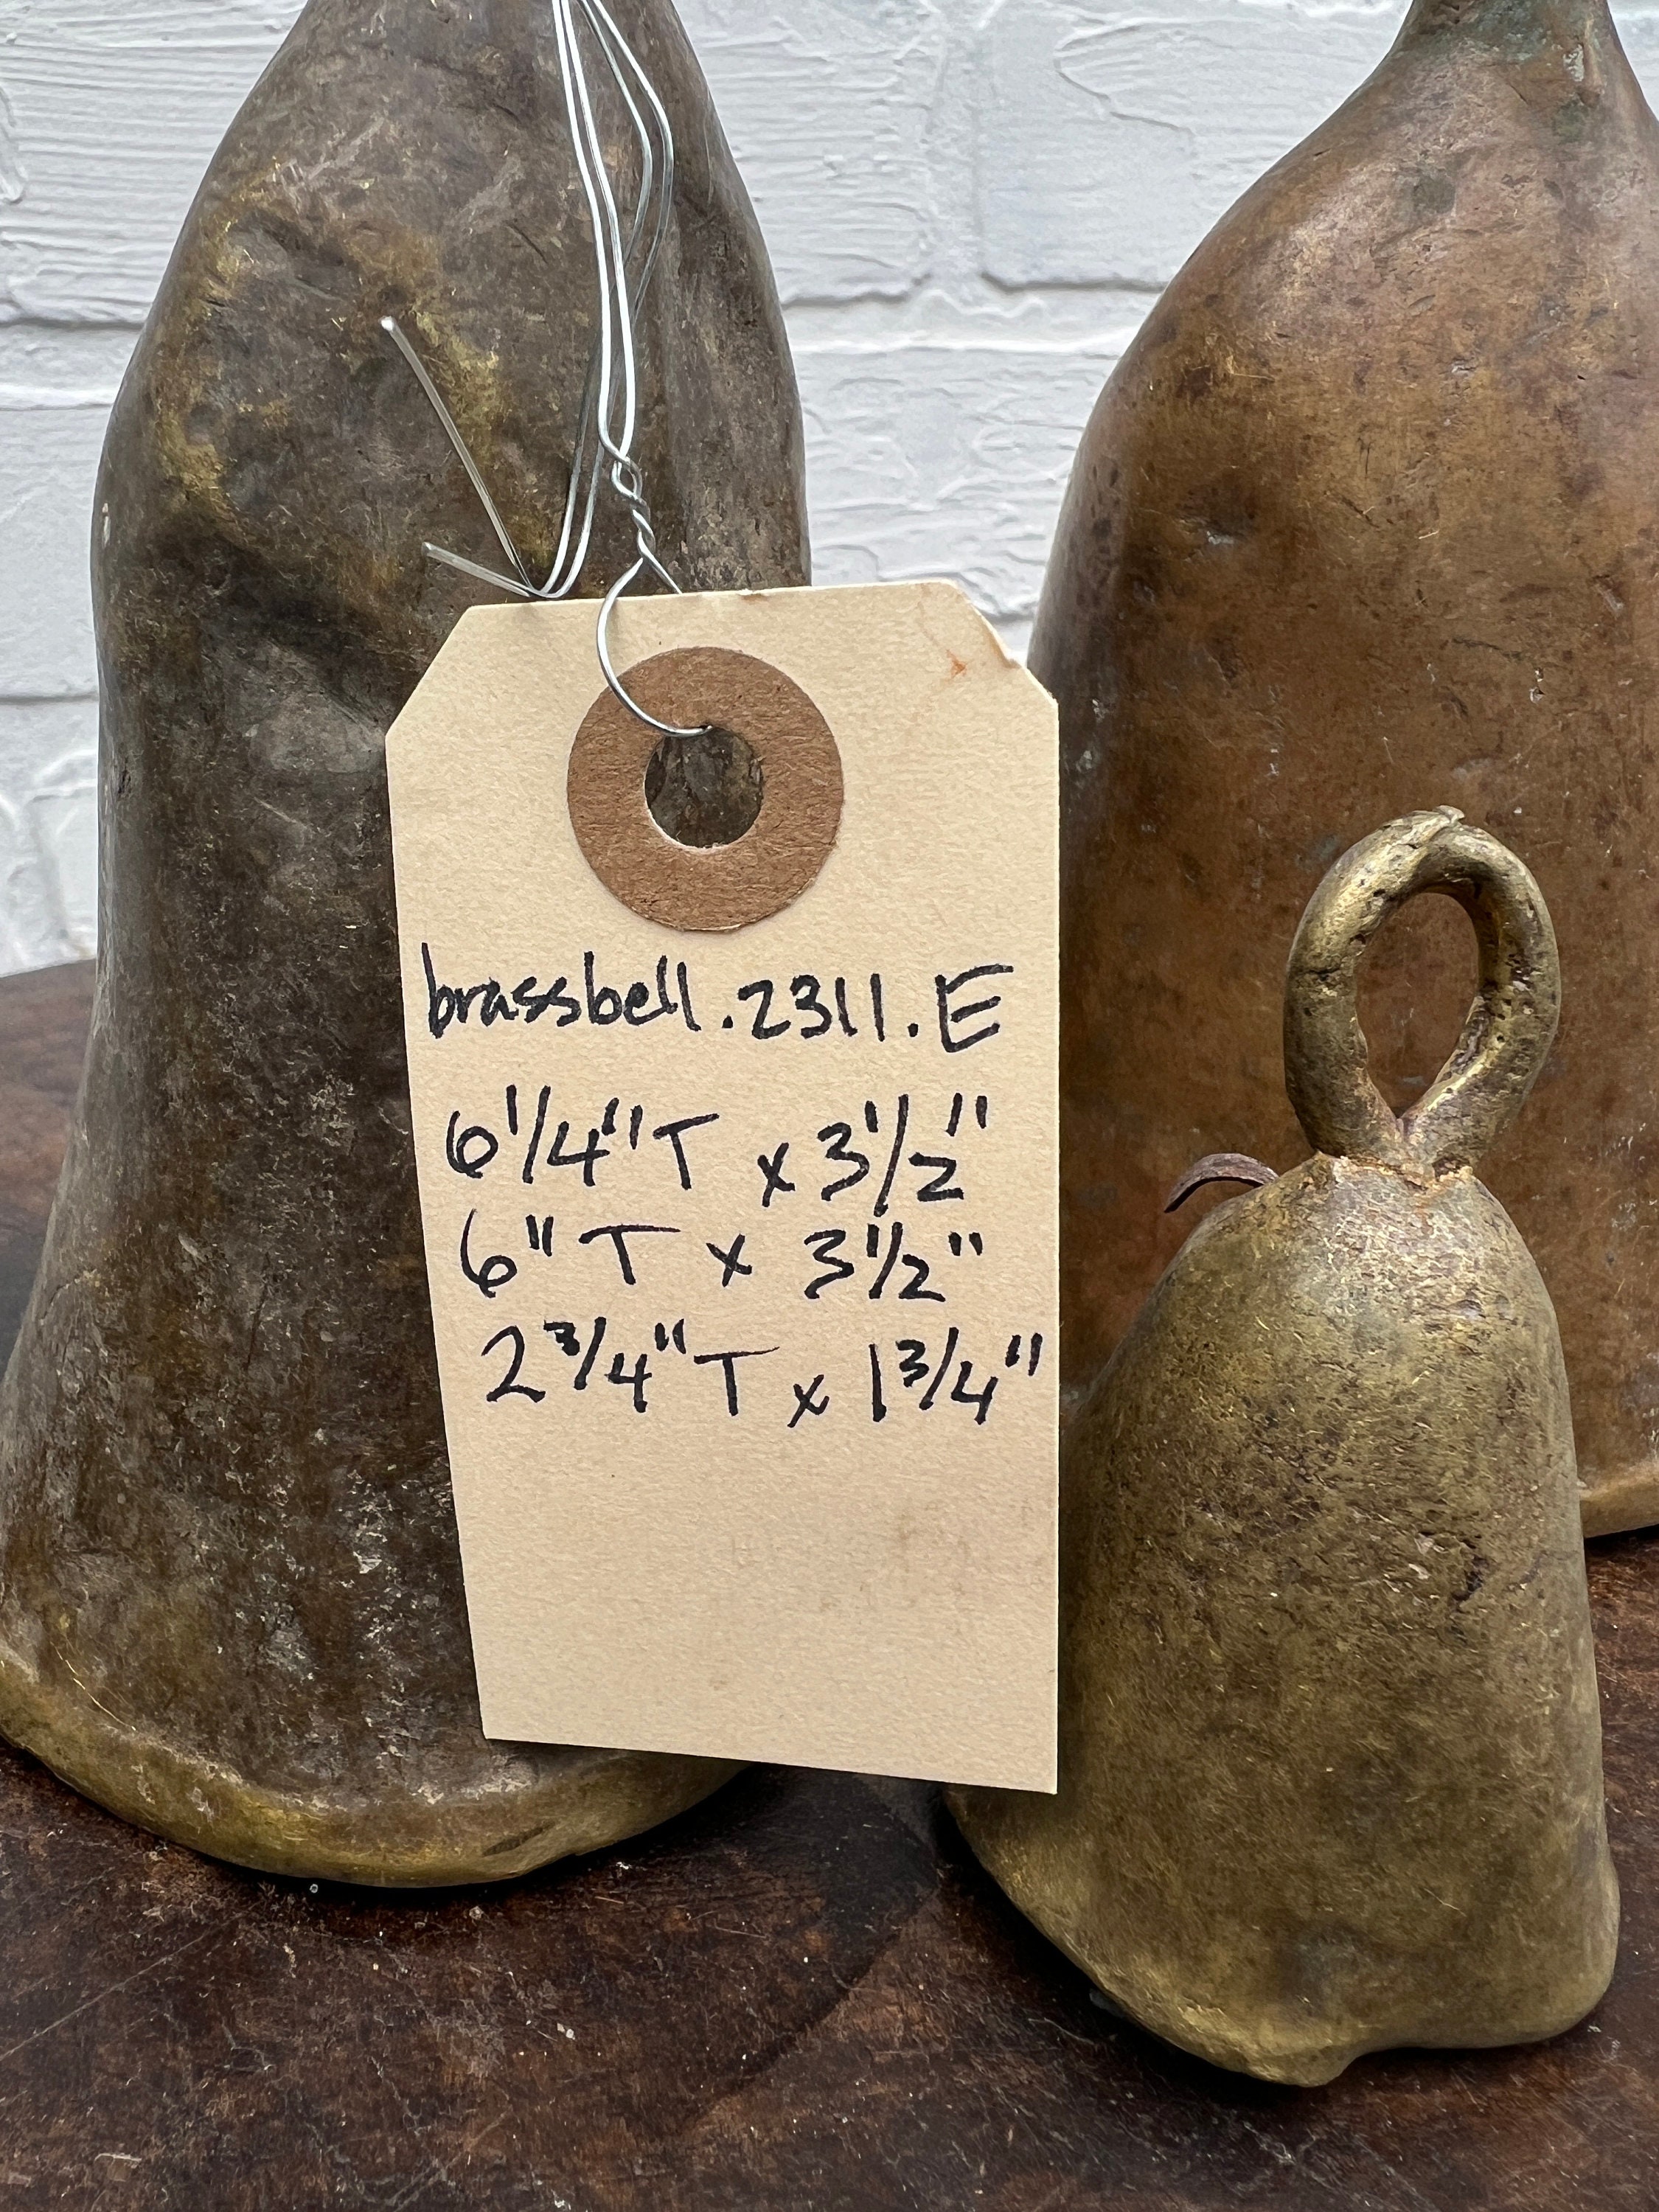 brassbell.2311.E
6 1/4" T x 3 1/2"
6" T x 3 1/2"
2 3/4" T x 1 3/4"